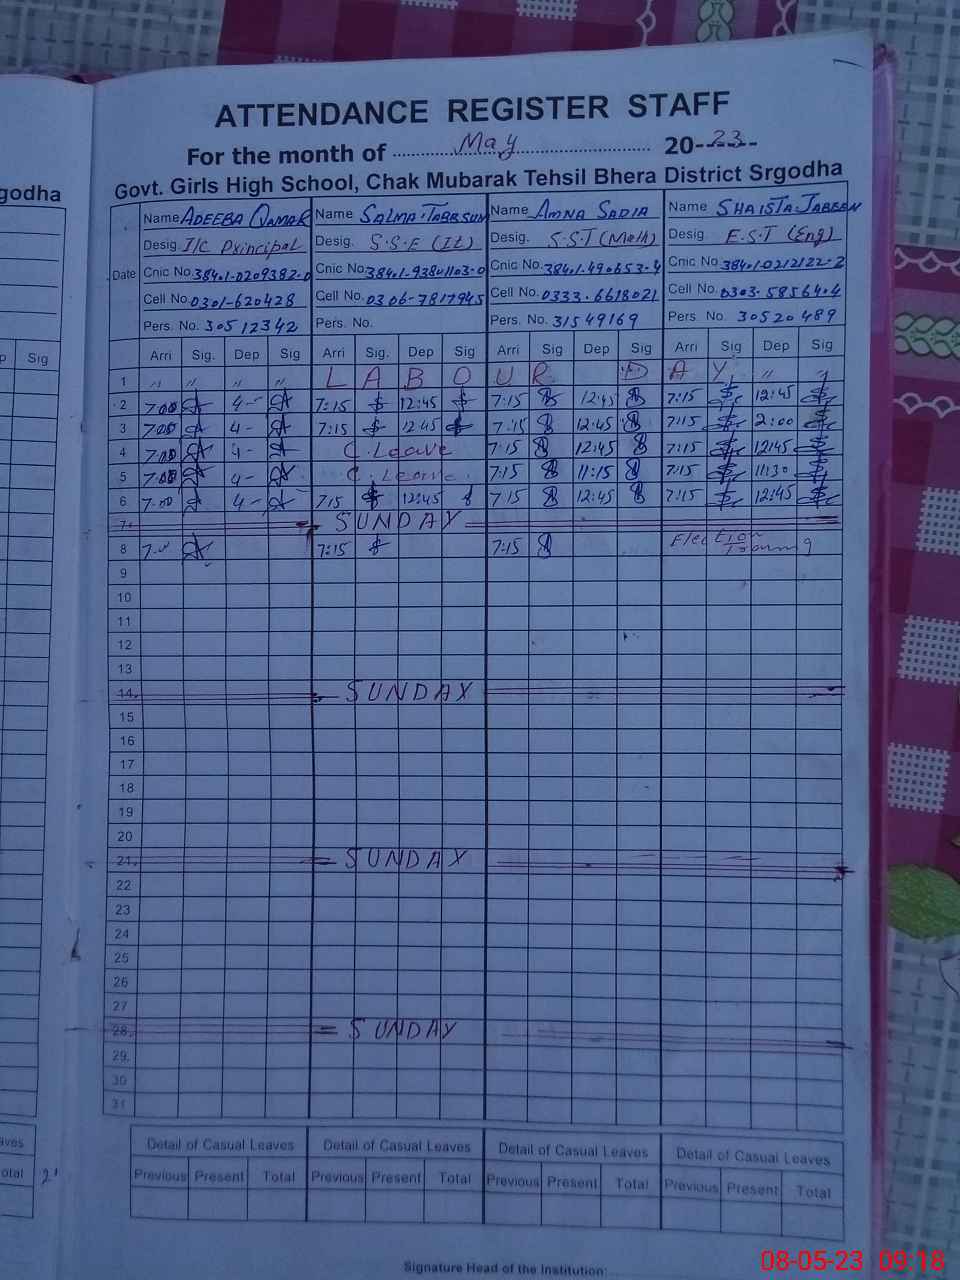 ATTENDANCE REGISTER STAFF
For the month of May 2023
Govt. Girls High School, Chak Mubarak Tehsil Bhera District Srgodha
rgodha
Name ADEEBA QAMAR Name SALMA TABBSUM Name AMNA SADIA Name SHAISTA JABEEN
Desig. I/C Principal Desig. S.S.E (It) Desig. S.S.T (Math) Desig. E.S.T (Eng)
Date Cnic No. 38401-0209382-0 Cnic No. 38401-93801103-0 Cnic No. 38401-490653-4 Cnic No. 38401-0212122-2
Cell No. 0301-620428 Cell No. 0306-7817945 Cell No. 0333-6618021 Cell No. 0303-5856404
Pers. No. 30512342 Pers. No. Pers. No. 31549169 Pers. No. 30520489
p Sig Arri Sig. Dep Sig Arri Sig. Dep Sig Arri Sig Dep Sig Arri Sig Dep Sig
1 " " " " LABOUR DAY "
2 7:00 4- 7:15 12:45 7:15 12:45 7:15 12:45
3 7:00 4- 7:15 12:45 7:15 12:45 7:15 2:00
4 7:00 4- C.Leave 7:15 12:45 7:15 12:45
5 7:00 4- C.Leave 7:15 11:15 7:15 11:30
6 7:00 4- 7:15 12:45 7:15 12:45 7:15 12:45
7 SUNDAY
8 7:15 7:15 Election Training
9
10
11
12
13
14 SUNDAY
15
16
17
18
19
20
21 SUNDAY
22
23
24
25
26
27
28 SUNDAY
29
30
31
aves Detail of Casual Leaves Detail of Casual Leaves Detail of Casual Leaves Detail of Casual Leaves
otal 2' Previous Present Total Previous Present Total Previous Present Total Previous Present Total
Signature Head of the Institution:
08-05-23 09:18